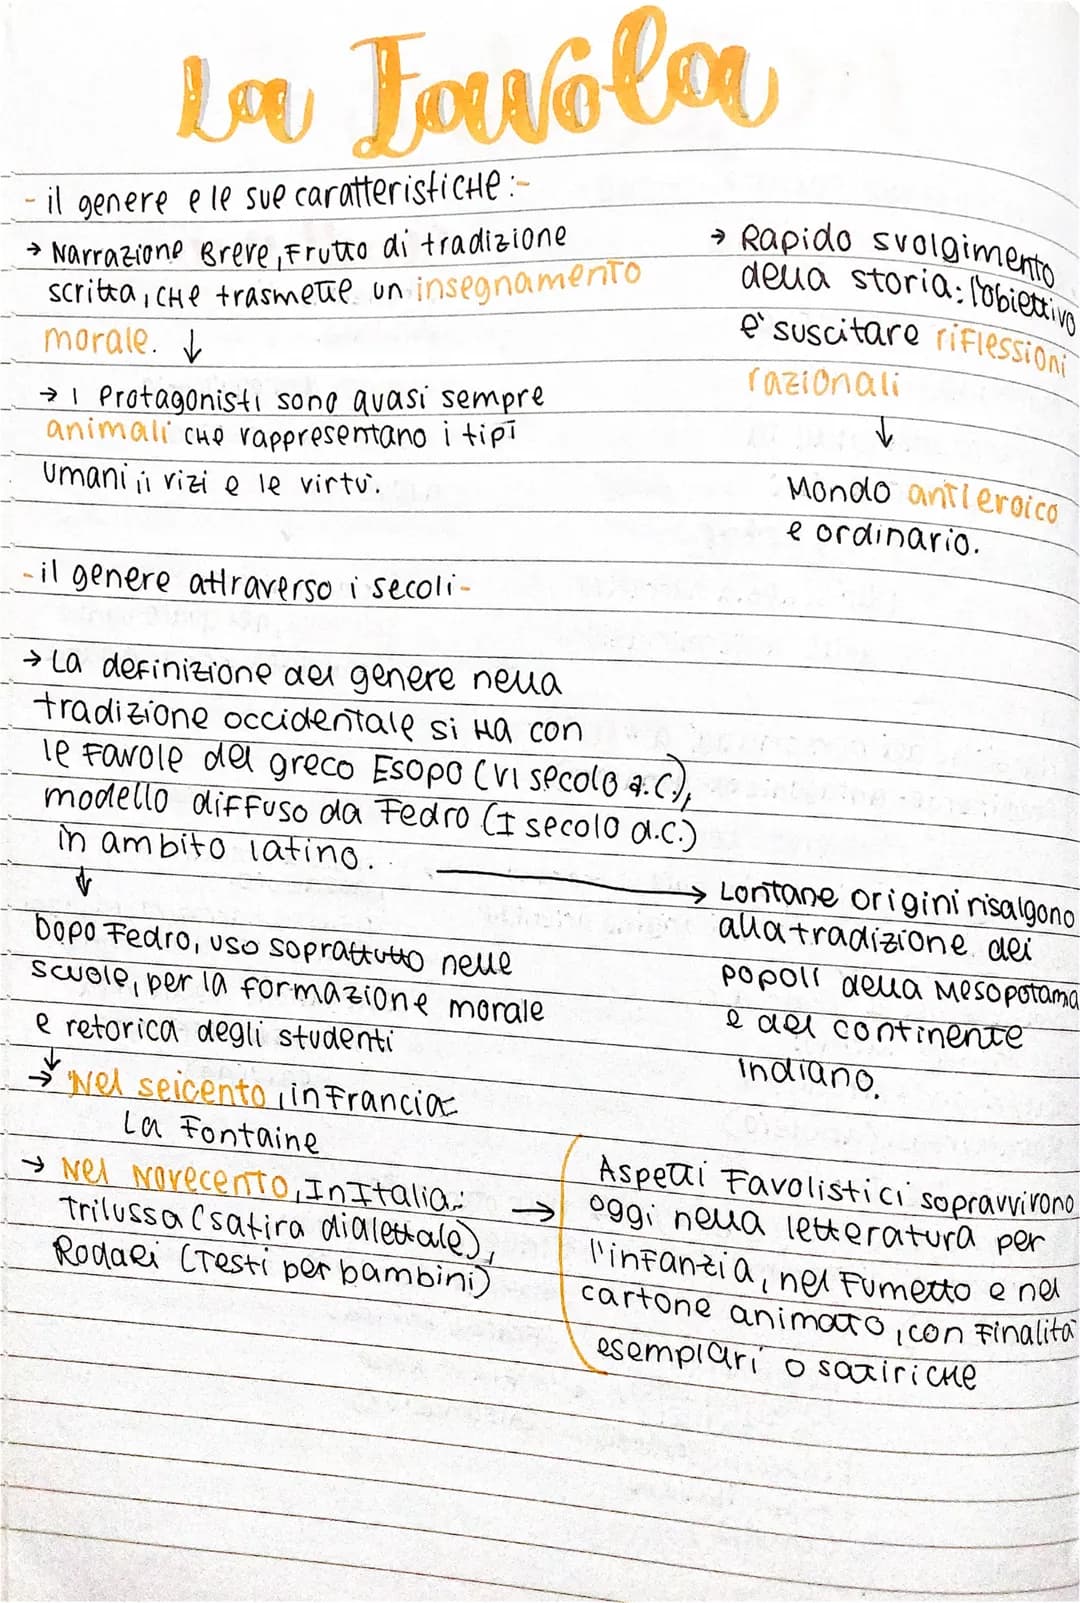 La Favola
- il genere e le sue caratteristiche:-
→ Narrazione Breve, Frutto di tradizione
scritta, che trasmette un insegnamento
morale. ↓
→ I Protagonisti sono quasi sempre
animali che rappresentano i tipi
umani, i vizi e le virtù.
→ Rapido svolgimento
della storia: l'obiettivo
è suscitare riflessioni
razionali
↓
Mondo antieroico
e ordinario.
- il genere attraverso i secoli -
→ La definizione del genere nella
tradizione occidentale si ha con
le favole del greco Esopo (VI secolo a.C.),
modello diffuso da Fedro (I secolo d.C.)
in ambito latino.
↓
→ Lontane origini risalgono
alla tradizione dei
popoli della Mesopotamia
e del continente
Indiano.
Dopo Fedro, uso soprattutto nelle
scuole, per la formazione morale
e retorica degli studenti
↓
→ Nel seicento, in Francia:
La Fontaine
→ Nel Novecento, In Italia:
Trilussa (satira dialettale),
Rodari (Testi per bambini)
→ Aspetti Favolistici sopravvivono
oggi nella letteratura per
l'infanzia, nel Fumetto e nel
cartone animato, con Finalità
esemplari o satiriche